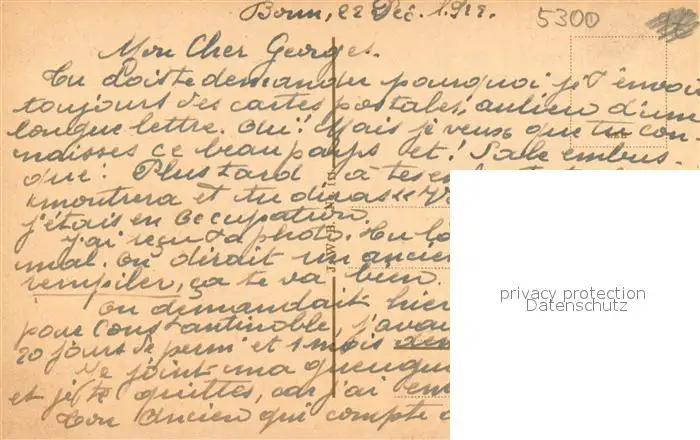 Bonn, 22 Déc. 1922.
5300
Mon Cher Georges.
Tu dois te demander pourquoi je t'envoie
toujours des cartes postales, au lieu d'une
longue lettre. Oui! Mais je veux que tu con-
naisses ce beau pays et! Sale embus-
qué! Plus tard à tes
montrera et tu diras
j'étais en Occupation.
J'ai reçu ta photo. Tu
mal. On dirait un ancien
rempiler, ça te va bien.
On demandait hier
pour Constantinoble, j'avais
20 jours de permi et 1 mois
Me joint ma
et je te quittes, car j'ai
Ton Ancien qui compte
privacy protection
Datenschutz